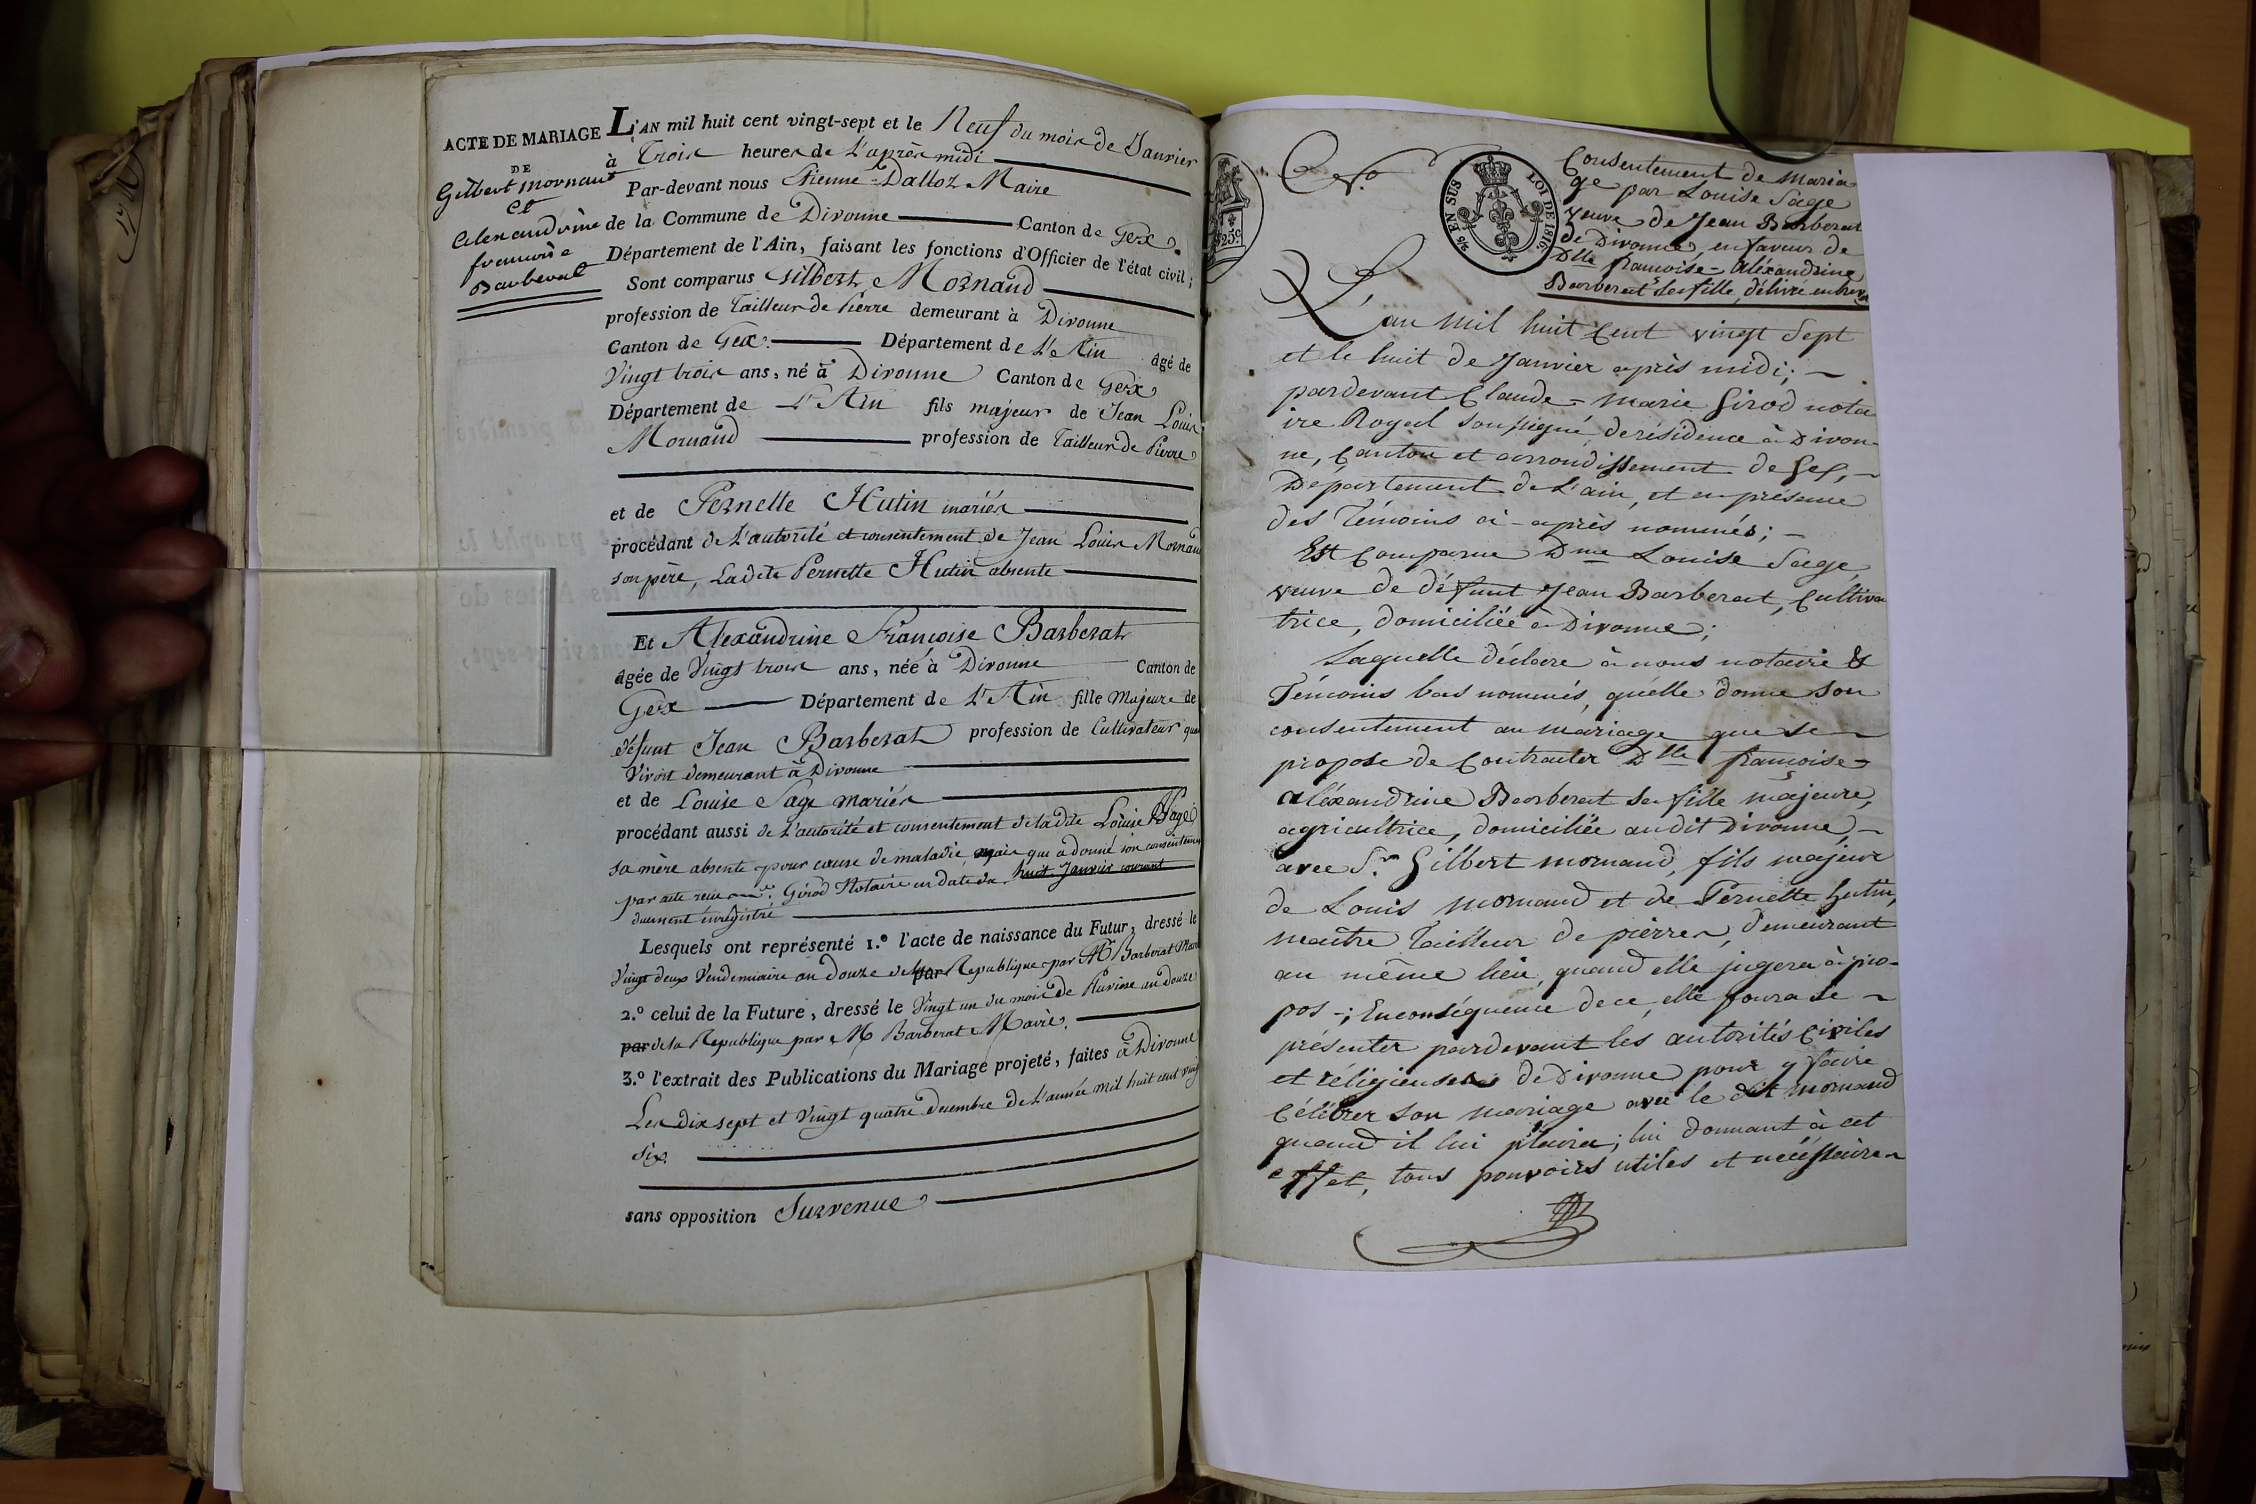 ACTE DE MARIAGE
DE
Gilbert Mornaud
et
Alexandrine
françoise
Barberat
L'AN mil huit cent vingt-sept et le Neuf du mois de Janvier
à Trois heures de L'après midi
Par-devant nous Etienne Dalloz Maire
de la Commune de Divonne Canton de Gex
Département de l'Ain, faisant les fonctions d'Officier de l'état civil ;
Sont comparus Gilbert Mornaud
profession de Tailleur de Pierre demeurant à Divonne
Canton de Gex. Département de L'Ain âgé de
Vingt trois ans, né à Divonne Canton de Gex
Département de L'Ain fils majeur de Jean Louis
Mornaud profession de Tailleur de Pierre
et de Pernette Hutin mariés
procédant de L'autorité et consentement de Jean Louis Mornaud
son père, Ladite Pernette Hutin absente
Et Alexandrine Françoise Barberat
âgée de Vingt trois ans, née à Divonne Canton de
Gex Département de L'Ain fille Majeure de
défunt Jean Barberat profession de Cultivateur qua
Vivoit demeurant à Divonne
et de Louise Sage mariés
procédant aussi de L'autorité et consentement de ladite Louise Sage
sa mère absente pour cause de maladie mais que a donné son consentement
par acte reçu Girod Notaire en date du huit Janvier courant
duement enregistré
Lesquels ont représenté 1.º l'acte de naissance du Futur, dressé le
Vingt deux Vendemiaire an douze de la par Republique par Mr Barberat Maire
2.º celui de la Future, dressé le Vingt un du mois de Pluviose an douze
par de la Republique par Mr Barberat Maire.
3.º l'extrait des Publications du Mariage projeté, faites à Divonne
Les dix sept et Vingt quatre decembre de L'année mil huit cent vingt
six.
sans opposition Survenue
25c.
Nº
EN SUS
LOI DE 1816.
Consentement de maria
ge par Louise Sage
veuve de Jean Barberat
de Divonne, en faveur de
Dlle françoise-Aléxandrine
Barberat sa fille, délivré en brevet
L'an mil huit Cent vingt Sept
et le huit de Janvier après midi; —
pardevant Claude-Marie Girod nota
ire Royal Soussigné, de résidence à Divon-
ne, Canton et arrondissement de Gex, —
Département de l'ain, et en présence
des Témoins ci-après nommés; —
Est Comparue Dme Louise Sage
veuve de défunt Jean Barberat, Cultiva
trice, domiciliée à Divonne;
Laquelle déclare à nous notaire &
Témoins bas nommés, qu'elle donne son
consentement au mariage que se —
propose de Contracter Dlle françoise-
aléxandrine Barberat sa fille majeure,
agricultrice, domiciliée audit Divonne, —
avec Sr. Gilbert mornaud, fils majeur
de Louis mornaud et de Pernette hutin,
maitre Tailleur de pierres, demeurant
au même lieu, quand elle jugera à pro-
pos -; En conséquence de ce, elle poura se —
présenter pardevant les autorités Civiles
et réligieuses de Divonne pour y faire
Célébrer son mariage avec le dit mornaud
quand il lui plaira; lui donnant à cet
effet, tous pouvoirs utiles et nécéssaires